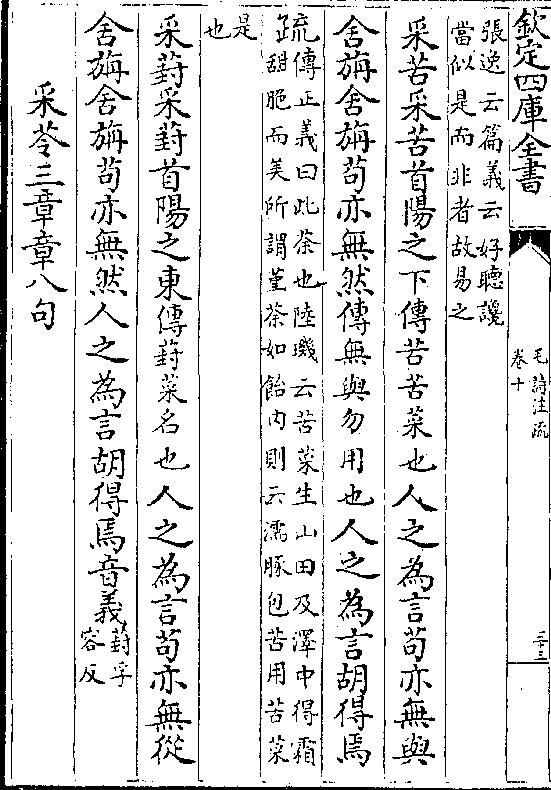 欽定四庫全書
毛詩注疏
卷十
三十三
張逸云篇義云好聽讒
當似是而非者故易之
采苦采苦首陽之下傳苦苦菜也人之為言苟亦無與
舍旃舍旃苟亦無然傳無與勿用也人之為言胡得焉
疏傳正義曰此荼也陸璣云苦菜生山田及澤中得霜
甜脆而美所謂堇荼如飴内則云濡豚包苦用苦菜
是
也
采葑采葑首陽之東傳葑菜名也人之為言苟亦無從
舍旃舍旃苟亦無然人之為言胡得焉音義葑孚
容反
采苓三章章八句